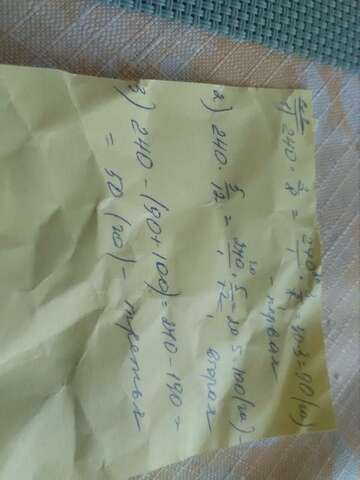 1) 240 · 3/8 = 240 · 3 / 8 = 30 · 3 = 90 (га)
- первая
2) 240 · 5/12 = 240 · 5 / 12 = 20 · 5 = 100 (га) -
вторая
3) 240 - (90 + 100) = 240 - 190 =
= 50 (га) - третья